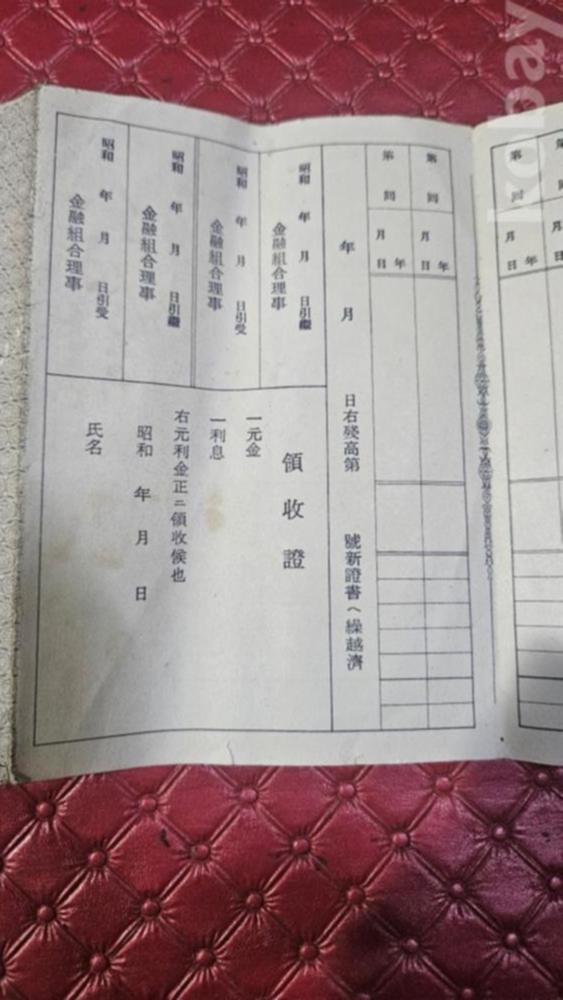 第 回 月 日 年
第 回 月 日 年
第 回 月 日 年
年 月 日右残高第 號新證書ヘ繰越濟
昭和 年 月 日引繼
金融組合理事
昭和 年 月 日引受
金融組合理事
昭和 年 月 日引繼
金融組合理事
昭和 年 月 日引受
金融組合理事
領收證
一元金
一利息
右元利金正ニ領收候也
昭和 年 月 日
氏名
kobay